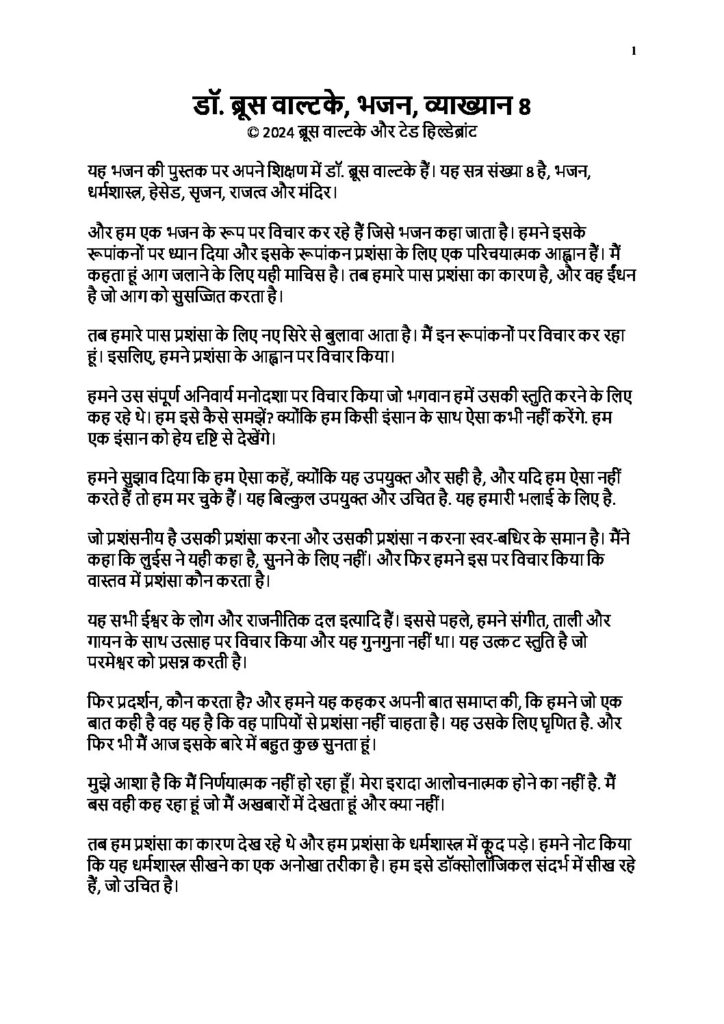 1
डॉ. ब्रूस वाल्टके, भजन, व्याख्यान 8
© 2024 ब्रूस वाल्टके और टेड हिल्डेब्रांट
यह भजन की पुस्तक पर अपने शिक्षण में डॉ. ब्रूस वाल्टके हैं। यह सत्र संख्या 8 है, भजन,
धर्मशास्त्र, हेसेड, सृजन, राजत्व और मंदिर।
और हम एक भजन के रूप पर विचार कर रहे हैं जिसे भजन कहा जाता है। हमने इसके
रूपांकनों पर ध्यान दिया और इसके रूपांकन प्रशंसा के लिए एक परिचयात्मक आह्वान हैं। मैं
कहता हूं आग जलाने के लिए यही माचिस है। तब हमारे पास प्रशंसा का कारण है, और वह ईंधन
है जो आग को सुसज्जित करता है।
तब हमारे पास प्रशंसा के लिए नए सिरे से बुलावा आता है। मैं इन रूपांकनों पर विचार कर रहा
हूं। इसलिए, हमने प्रशंसा के आह्वान पर विचार किया।
हमने उस संपूर्ण अनिवार्य मनोदशा पर विचार किया जो भगवान हमें उसकी स्तुति करने के लिए
कह रहे थे। हम इसे कैसे समझें? क्योंकि हम किसी इंसान के साथ ऐसा कभी नहीं करेंगे. हम
एक इंसान को हेय दृष्टि से देखेंगे।
हमने सुझाव दिया कि हम ऐसा कहें, क्योंकि यह उपयुक्त और सही है, और यदि हम ऐसा नहीं
करते हैं तो हम मर चुके हैं। यह बिल्कुल उपयुक्त और उचित है. यह हमारी भलाई के लिए है.
जो प्रशंसनीय है उसकी प्रशंसा करना और उसकी प्रशंसा न करना स्वर-बधिर के समान है। मैंने
कहा कि लुईस ने यही कहा है, सुनने के लिए नहीं। और फिर हमने इस पर विचार किया कि
वास्तव में प्रशंसा कौन करता है।
यह सभी ईश्वर के लोग और राजनीतिक दल इत्यादि हैं। इससे पहले, हमने संगीत, ताली और
गायन के साथ उत्साह पर विचार किया और यह गुनगुना नहीं था। यह उत्कट स्तुति है जो
परमेश्वर को प्रसन्न करती है।
फिर प्रदर्शन, कौन करता है? और हमने यह कहकर अपनी बात समाप्त की, कि हमने जो एक
बात कही है वह यह है कि वह पापियों से प्रशंसा नहीं चाहता है। यह उसके लिए घृणित है. और
फिर भी मैं आज इसके बारे में बहुत कुछ सुनता हूं।
मुझे आशा है कि मैं निर्णयात्मक नहीं हो रहा हूँ। मेरा इरादा आलोचनात्मक होने का नहीं है. मैं
बस वही कह रहा हूं जो मैं अखबारों में देखता हूं और क्या नहीं।
तब हम प्रशंसा का कारण देख रहे थे और हम प्रशंसा के धर्मशास्त्र में कूद पड़े। हमने नोट किया
कि यह धर्मशास्त्र सीखने का एक अनोखा तरीका है। हम इसे डॉक्सोलॉजिकल संदर्भ में सीख रहे
हैं, जो उचित है।